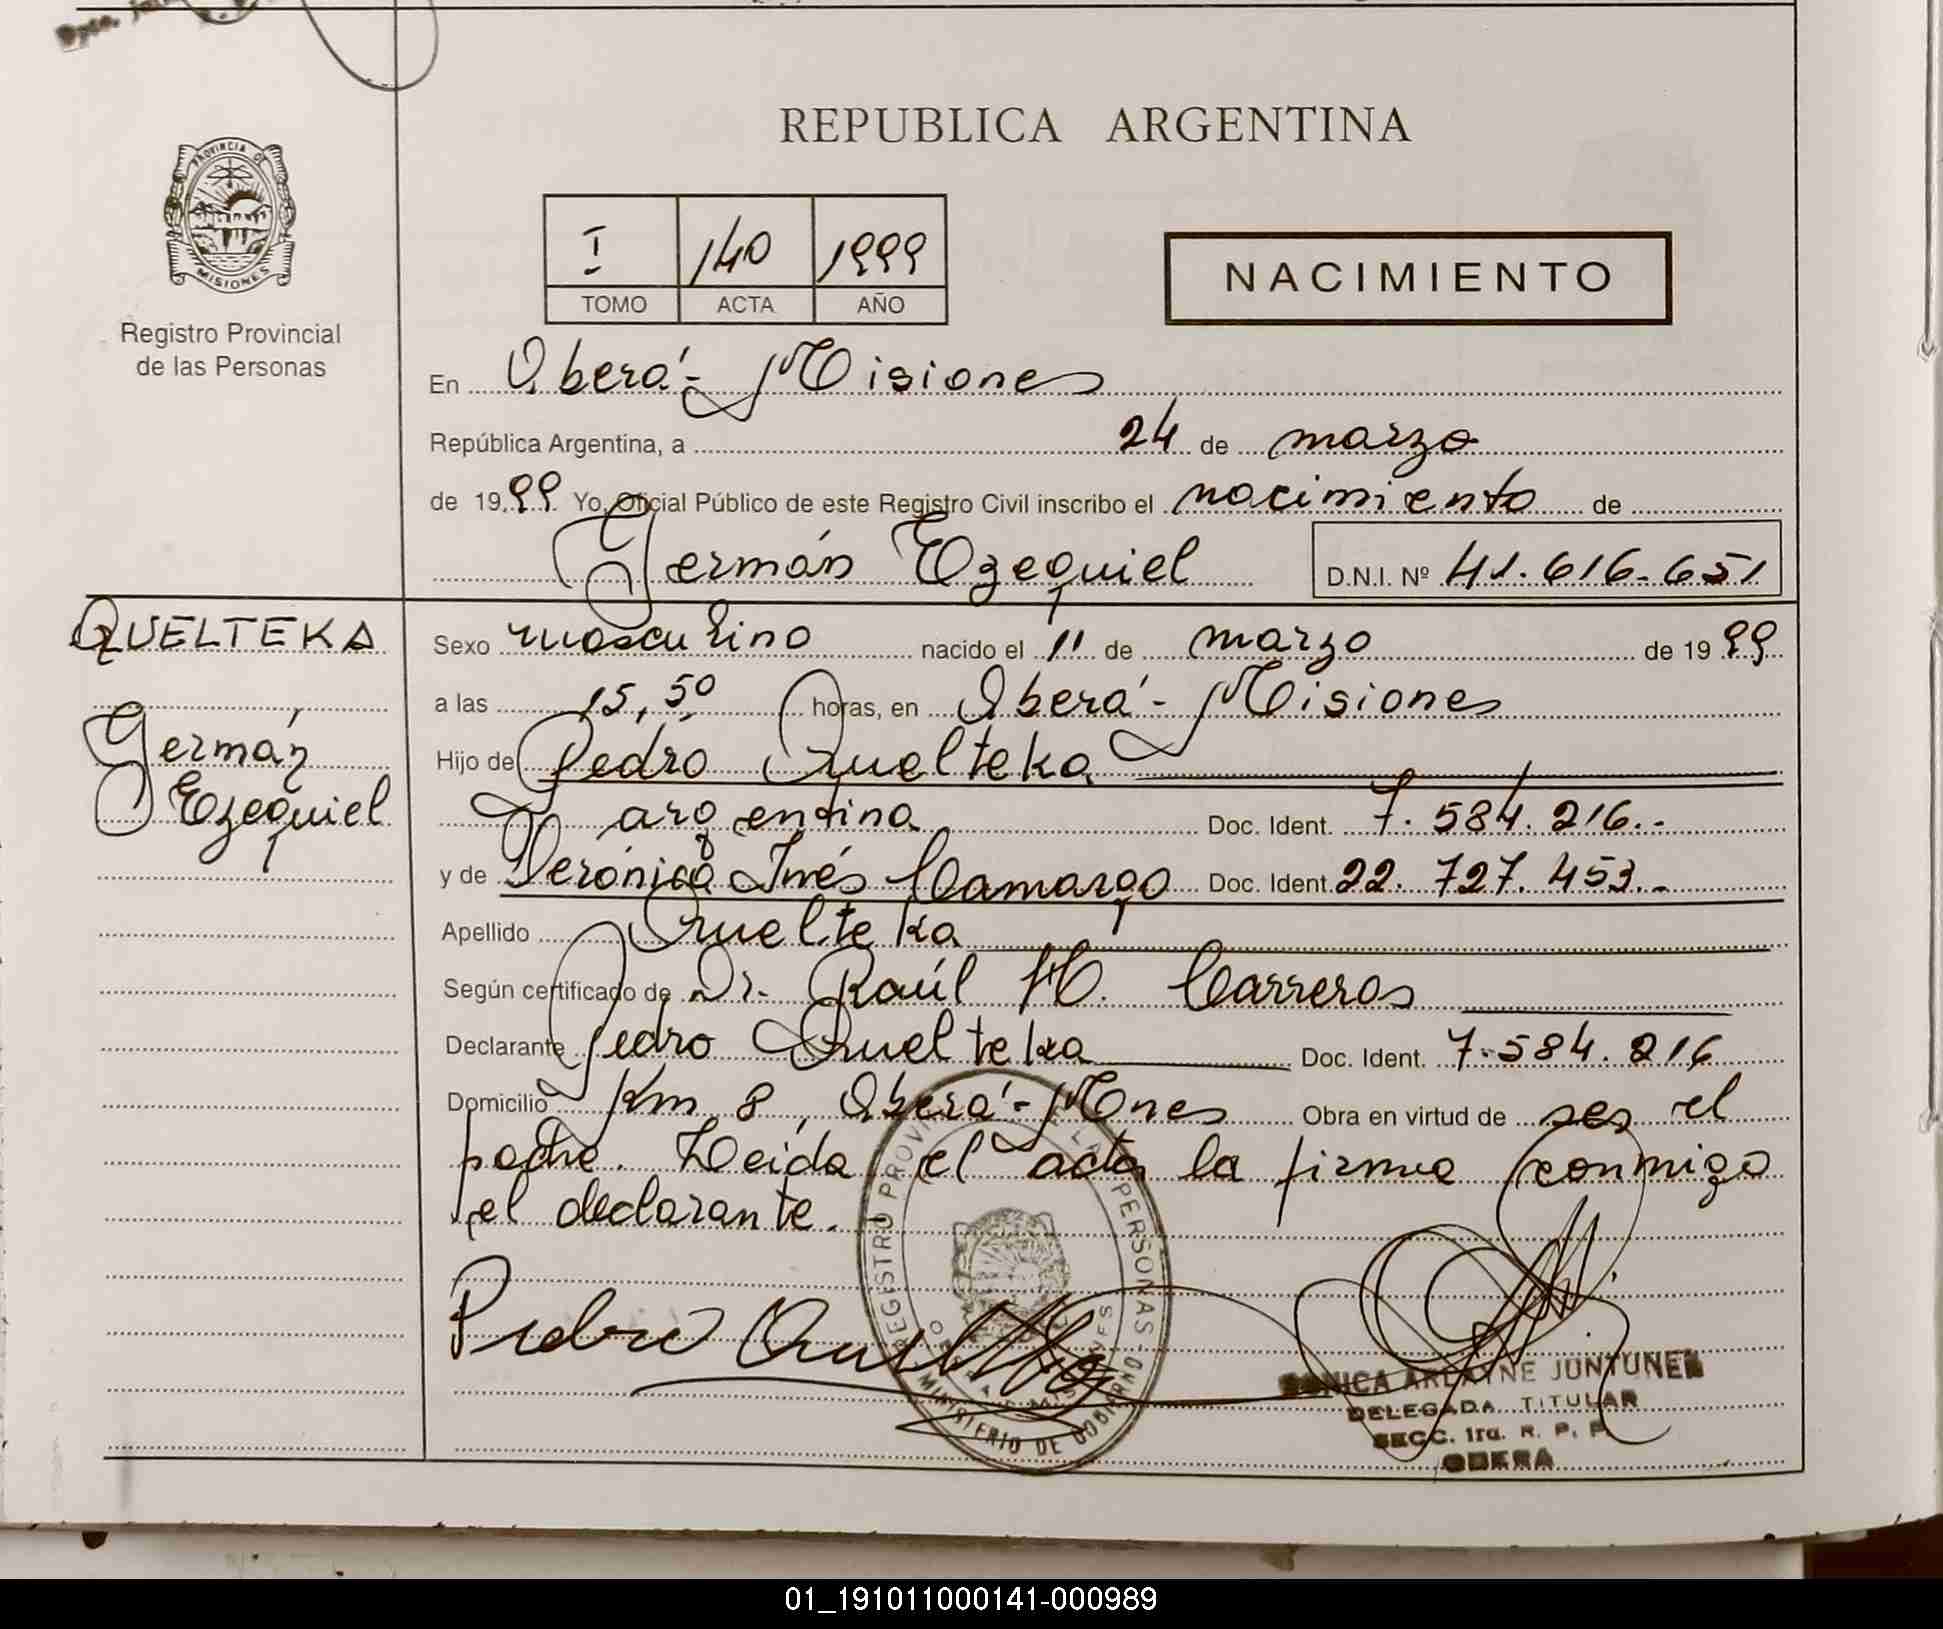 REPUBLICA ARGENTINA
PROVINCIA DE
MISIONES
Registro Provincial
de las Personas
I 140 1999
TOMO ACTA AÑO
NACIMIENTO
En Oberá - Misiones
República Argentina, a 24 de marzo
de 1999 Yo, Oficial Público de este Registro Civil inscribo el nacimiento de
Germán Ezequiel D.N.I. Nº 41.616.651
QUELTEKA
Germán
Ezequiel
Sexo masculino nacido el 11 de marzo de 1999
a las 15,50 horas, en Oberá - Misiones
Hijo de Pedro Quelteka
argentina Doc. Ident. 7.584.216.-
y de Verónica Inés Camargo Doc. Ident. 22.727.453.-
Apellido Quelteka
Según certificado de Dr. Raúl H. Carreras
Declarante Pedro Quelteka Doc. Ident. 7.584.216
Domicilio Km 8, Oberá - Mnes Obra en virtud de ser el
padre. Leída el acta la firma conmigo
el declarante.
Pedro Quelteka
REGISTRO PROVINCIAL DE LAS PERSONAS
MINISTERIO DE GOBIERNO
ARLAYNE JUNTUNEN
DELEGADA TITULAR
SECC. 1ra. R. P. P.
OBERA
01_191011000141-000989